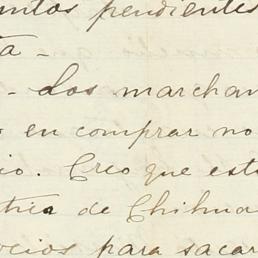 untos pendientes
ta -
- Los marchan
o en comprar no
io. Creo que est
tria de Chihua
ocios para sacar